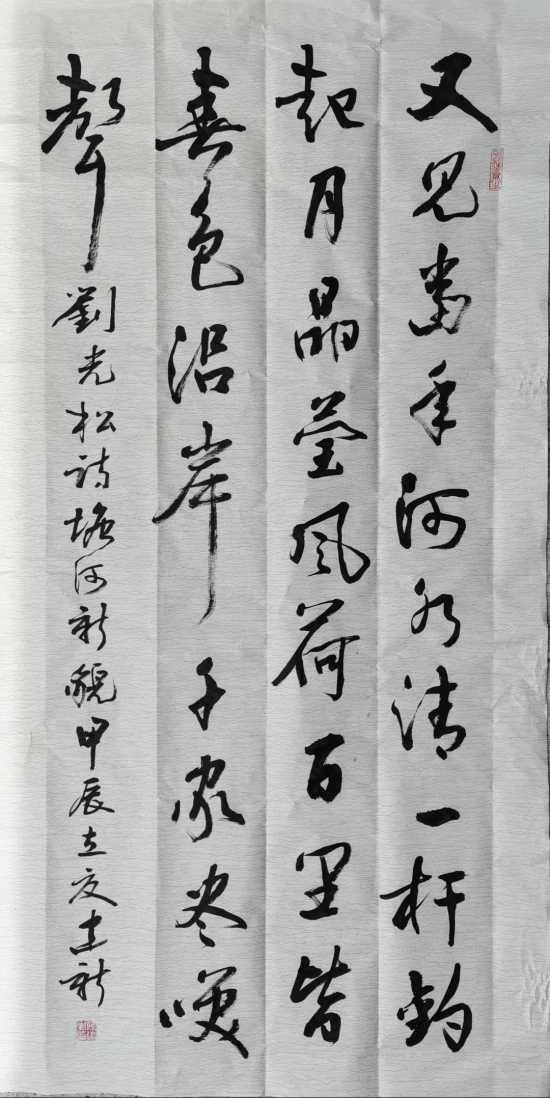 又见当年河水清一杆钓
起月晶莹风荷百里皆
春色沿岸千家尽笑
声 劉光松诗塘河新貌甲辰立夏建新